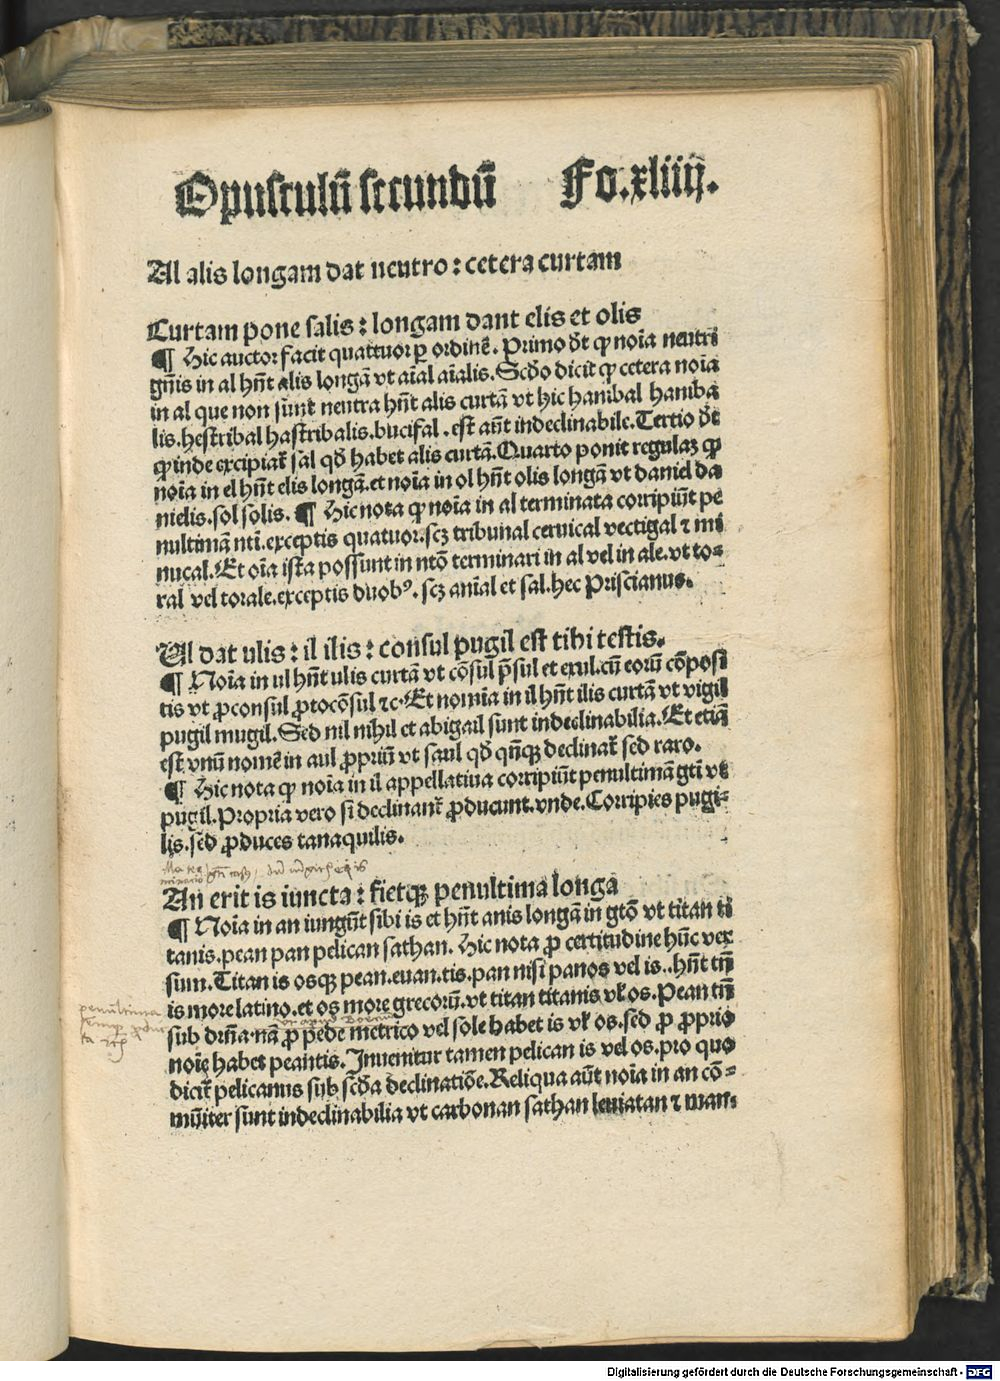 Opusculū secundū Fo.xliiij.
Al alis longam dat neutro : cetera curtam
Curtam pone salis : longam dant elis et olis
¶ Hic auctor facit quattuor ꝑ ordinē. Primo dt ꝙ noīa neutri
gn̄is in al hn̄t alis longā vt aīal aīalis. Scd̄o dicit ꝙ cetera noīa
in al que non sunt neutra hn̄t alis curtā vt hic hanibal haniba
lis.hestribal hastribalis.bucifal .est aūt indeclinabile.Tertio dt
ꝙ inde excipiat᷑ sal qd̄ habet alis curtā.Quarto ponit regulaꝫ ꝙ
noīa in el hn̄t elis longā.et noīa in ol hn̄t olis longā vt daniel da
nielis.sol solis. ¶ Hic nota ꝙ noīa in al terminata corripiūt pe
nultimā ntī.exceptis quatuor.scꝫ tribunal ceruical vectigal ⁊ mi
nucal.Et oīa ista possunt in ntō terminari in al vel in ale.vt to-
ral vel torale.exceptis duobꝰ. scꝫ anīal et sal.hec Priscianus.
Ul dat ulis : il ilis : consul pugil est tibi testis.
¶ Noīa in ul hn̄t ulis curtā vt cōsul p̄sul et exul.cū eorū cōposi
tis vt ꝓconsul ꝓtocōsul ⁊c.Et nomīa in il hn̄t ilis curtā vt vigil
pugil mugil.Sed nil nihil et abigail sunt indeclinabilia.Et etiā
est vnū nomē in aul ꝓpriū vt saul qd̄ qn̄qꝫ declinat᷑ sed raro.
¶ Hic nota ꝙ noīa in il appellatiua corripiūt penultimā gtī vt
pugil.Propria vero si declinant᷑ ꝓducunt.vnde.Corripies pugi-
lis.sed ꝓduces tanaquilis.
An erit is iuncta : fietqꝫ penultima longa
¶ Noīa in an iungūt sibi is et hn̄t anis longā in gtō vt titan ti
tanis.pean pan pelican sathan. Hic nota ꝓ certitudine hūc ver
sum.Titan is osqꝫ pean.euan.tis.pan nisi panos vel is..hn̄t tn̄
penultima
is more latino.et os more grecorū.vt titan titanis vƚ os.Pean tn̄
sub dr̄na.nā ꝓ pede metrico vel sole habet is vƚ os.sed ꝓ ꝓprio
noīe habet peantis.Inuenitur tamen pelican is vel os.pro quo
dicit᷑ pelicanus sub scd̄a declinatiōe.Reliqua aūt noīa in an cō-
mūiter sunt indeclinabilia vt carbonan sathan leuiatan ⁊ man-
Digitalisierung gefördert durch die Deutsche Forschungsgemeinschaft - DFG